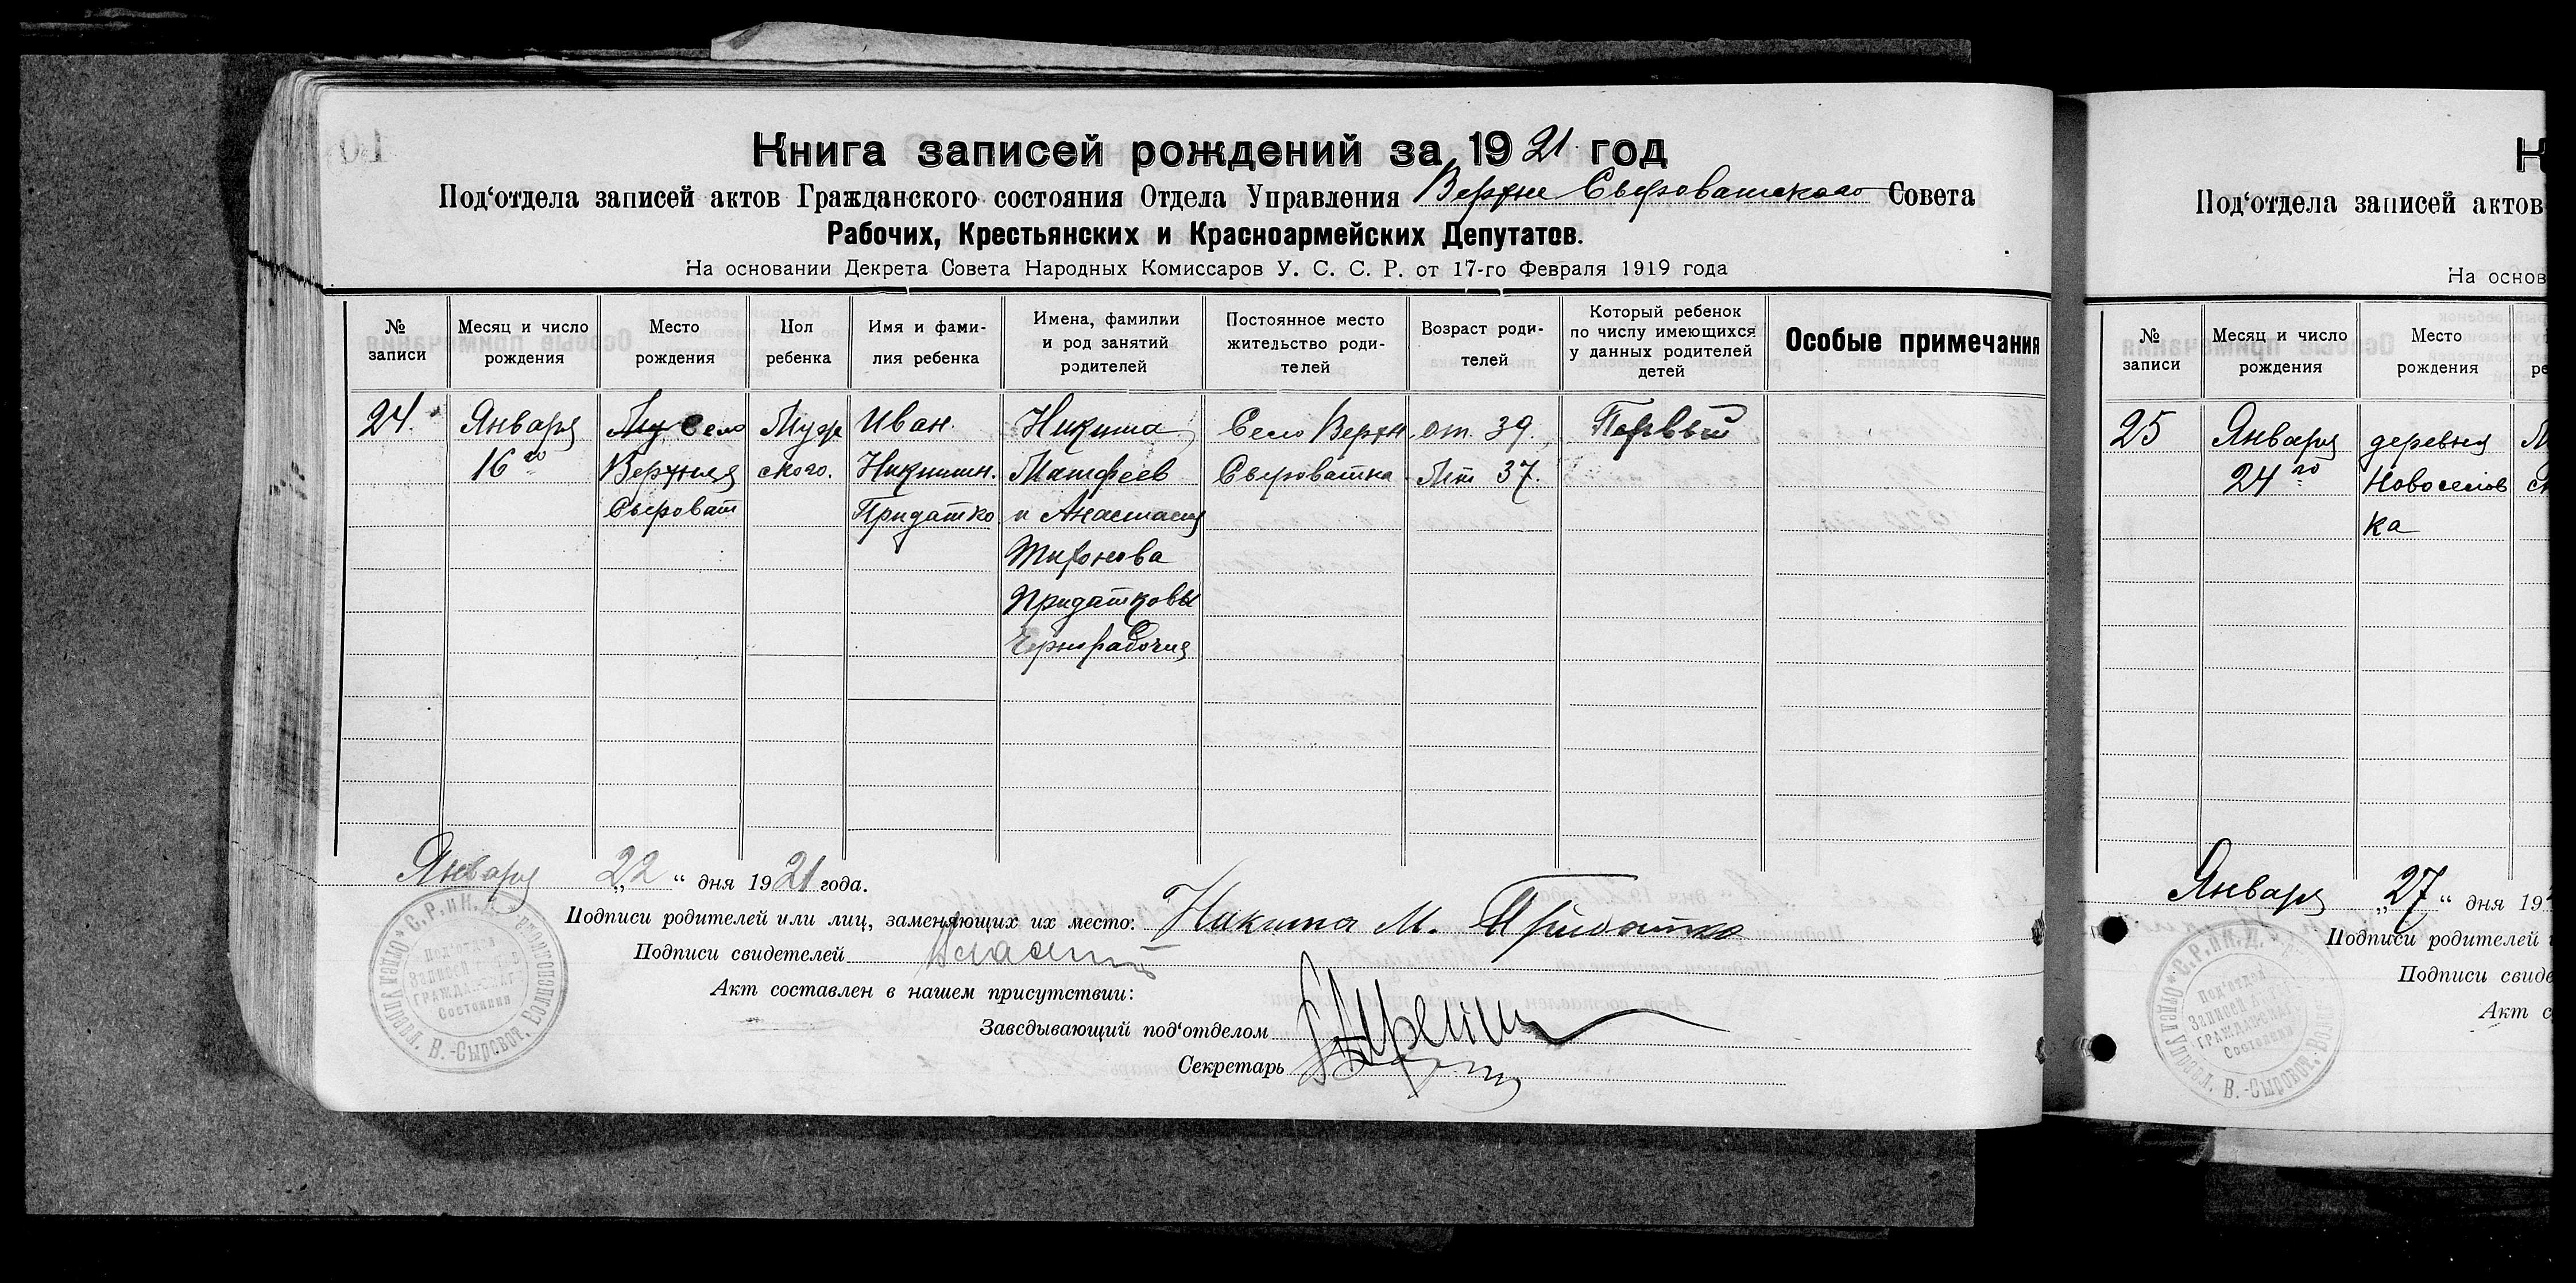 Книга записей рождений за 1921 год
Под‘отдела записей актов Гражданского состояния Отдела Управления Верхне Сыроватского Совета
Рабочих, Крестьянских и Красноармейских Депутатов.
На основании Декрета Совета Народных Комиссаров У. С. С. Р. от 17-го Февраля 1919 года
№ записи
Месяц и число рождения
Место рождения
Пол ребенка
Имя и фами-
лия ребенка
Имена, фамилии
и род занятий
родителей
Постоянное место
жительство роди-
телей
Возраст роди-
телей
Который ребенок
по числу имеющихся
у данных родителей
детей
Особые примечания
24.
Января
16го
Село
Верхняя
Сыроват
Муж
ского.
Иван.
Никитин.
Придатко
Никита
Матфеев
и Анастасия
Миронова
Придатковы
Чернорабочия
Село Верхн
Сыроватка
от. 39.
Мт 37.
Первый
Января „22“ дня 1921 года.
Подписи родителей или лиц, заменяющих их место: Никита М. Придатко
Подписи свидетелей
Акт составлен в нашем присутствии:
Заведывающий под‘отделом
Секретарь
С.Р.иК.Д.
Под‘отдел
Записей Актов
ГРАЖДАНСКАГО
Состояния
В.-Сыроват.
К
Под‘отдела записей актов
На основ
№ записи
Месяц и число рождения
Место рождения
25
Января
24го
деревня
Новоселов
ка
Января „27“ дня 19
Подписи родителей
Подписи свиде
Акт с
С.Р.иК.Д.
Под‘отдел
Записей Актов
ГРАЖДАНСКАГО
Состояния
В.-Сыроват.